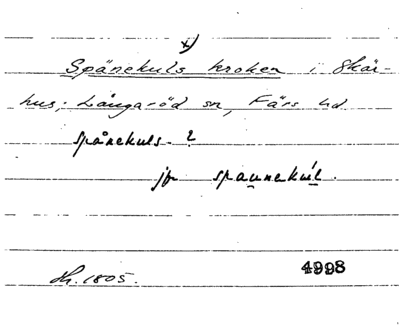 x)
Spånekuls kroken i Skär-
hus; Långaröd sn, Färs hd.
spånekuls- ?
jfr spaunekúl.
Sk. 1805.
4998